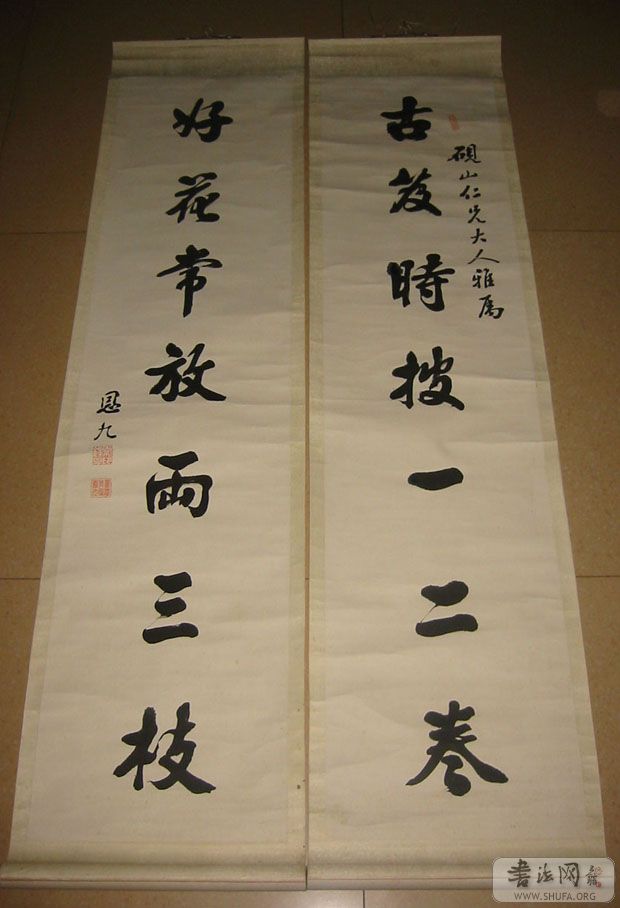 古芨時搜一二卷
硯山仁兄大人雅属
好花常放兩三枝
恩九
書法网
WWW.SHUFA.ORG